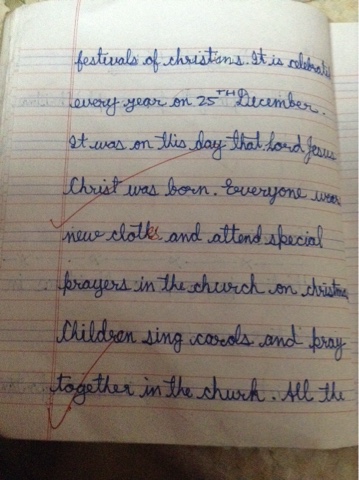 festivals of christians. It is celebrated
every year on 25TH December.
It was on this day that Lord Jesus
Christ was born. Everyone wear
new cloths and attend special
prayers in the church on christmas
Children sing carols and pray
together in the churh. All the